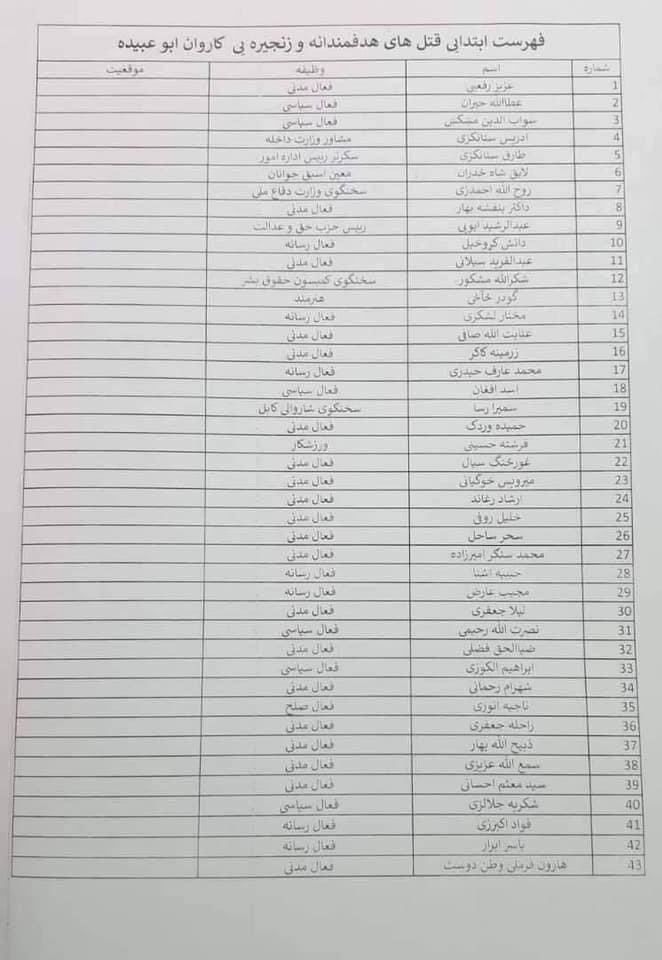 فهرست ابتدایی قتل های هدفمندانه و زنجیره یی کاروان ابو عبیده
شماره اسم وظیفه موقعیت
1 عزیز رفعیی فعال مدنی
2 عطاالله حیران فعال سیاسی
3 سواب الدین مشکش فعال سیاسی
4 ادریس ستانکزی مشاور وزارت داخله
5 طارق ستانکزی سکرتر رییس اداره امور
6 لایق شاه خدران معین اسبق جوانان
7 روح الله احمدزی سخنگوی وزارت دفاع ملی
8 داکتر بنفشه بهار فعال مدنی
9 عبدالرشید ایوبی رییس حزب حق و عدالت
10 دانش کروخیل فعال رسانه
11 عبدالفرید سیلانی فعال مدنی
12 شکرالله مشکور سخنگوی کمیسون حقوق بشر
13 گودر خاخی هنرمند
14 مختار لشکری فعال رسانه
15 عنایت الله صافی فعال مدنی
16 زرمینه کاکر فعال مدنی
17 محمد عارف حیدری فعال رسانه
18 اسد افغان فعال سیاسی
19 سمیرا رسا سخنگوی شاروالی کابل
20 حمیده وردک فعال مدنی
21 فرشته حسینی ورزشکار
22 غورځنگ سیال فعال مدنی
23 میرویس خوگیانی فعال مدنی
24 ارشاد رغاند فعال مدنی
25 خلیل روفی فعال مدنی
26 سحر ساحل فعال مدنی
27 محمد سنگر امیرزاده فعال مدنی
28 حبیبه اشنا فعال رسانه
29 مجیب عارض فعال رسانه
30 لیلا جعفری فعال مدنی
31 نصرت الله رحیمی فعال سیاسی
32 ضیاالحق فضلی فعال مدنی
33 ابراهیم الکوزی فعال سیاسی
34 شهرام رحمانی فعال مدنی
35 ناجیه انوری فعال صلح
36 راحله جعفری فعال مدنی
37 ذبیح الله بهار فعال مدنی
38 سمع الله عزیزی فعال مدنی
39 سید معتم احسانی فعال مدنی
40 شکریه جلالزی فعال سیاسی
41 فواد اکبرزی فعال رسانه
42 یاسر ابرار فعال رسانه
43 هارون فرملی وطن دوست فعال مدنی